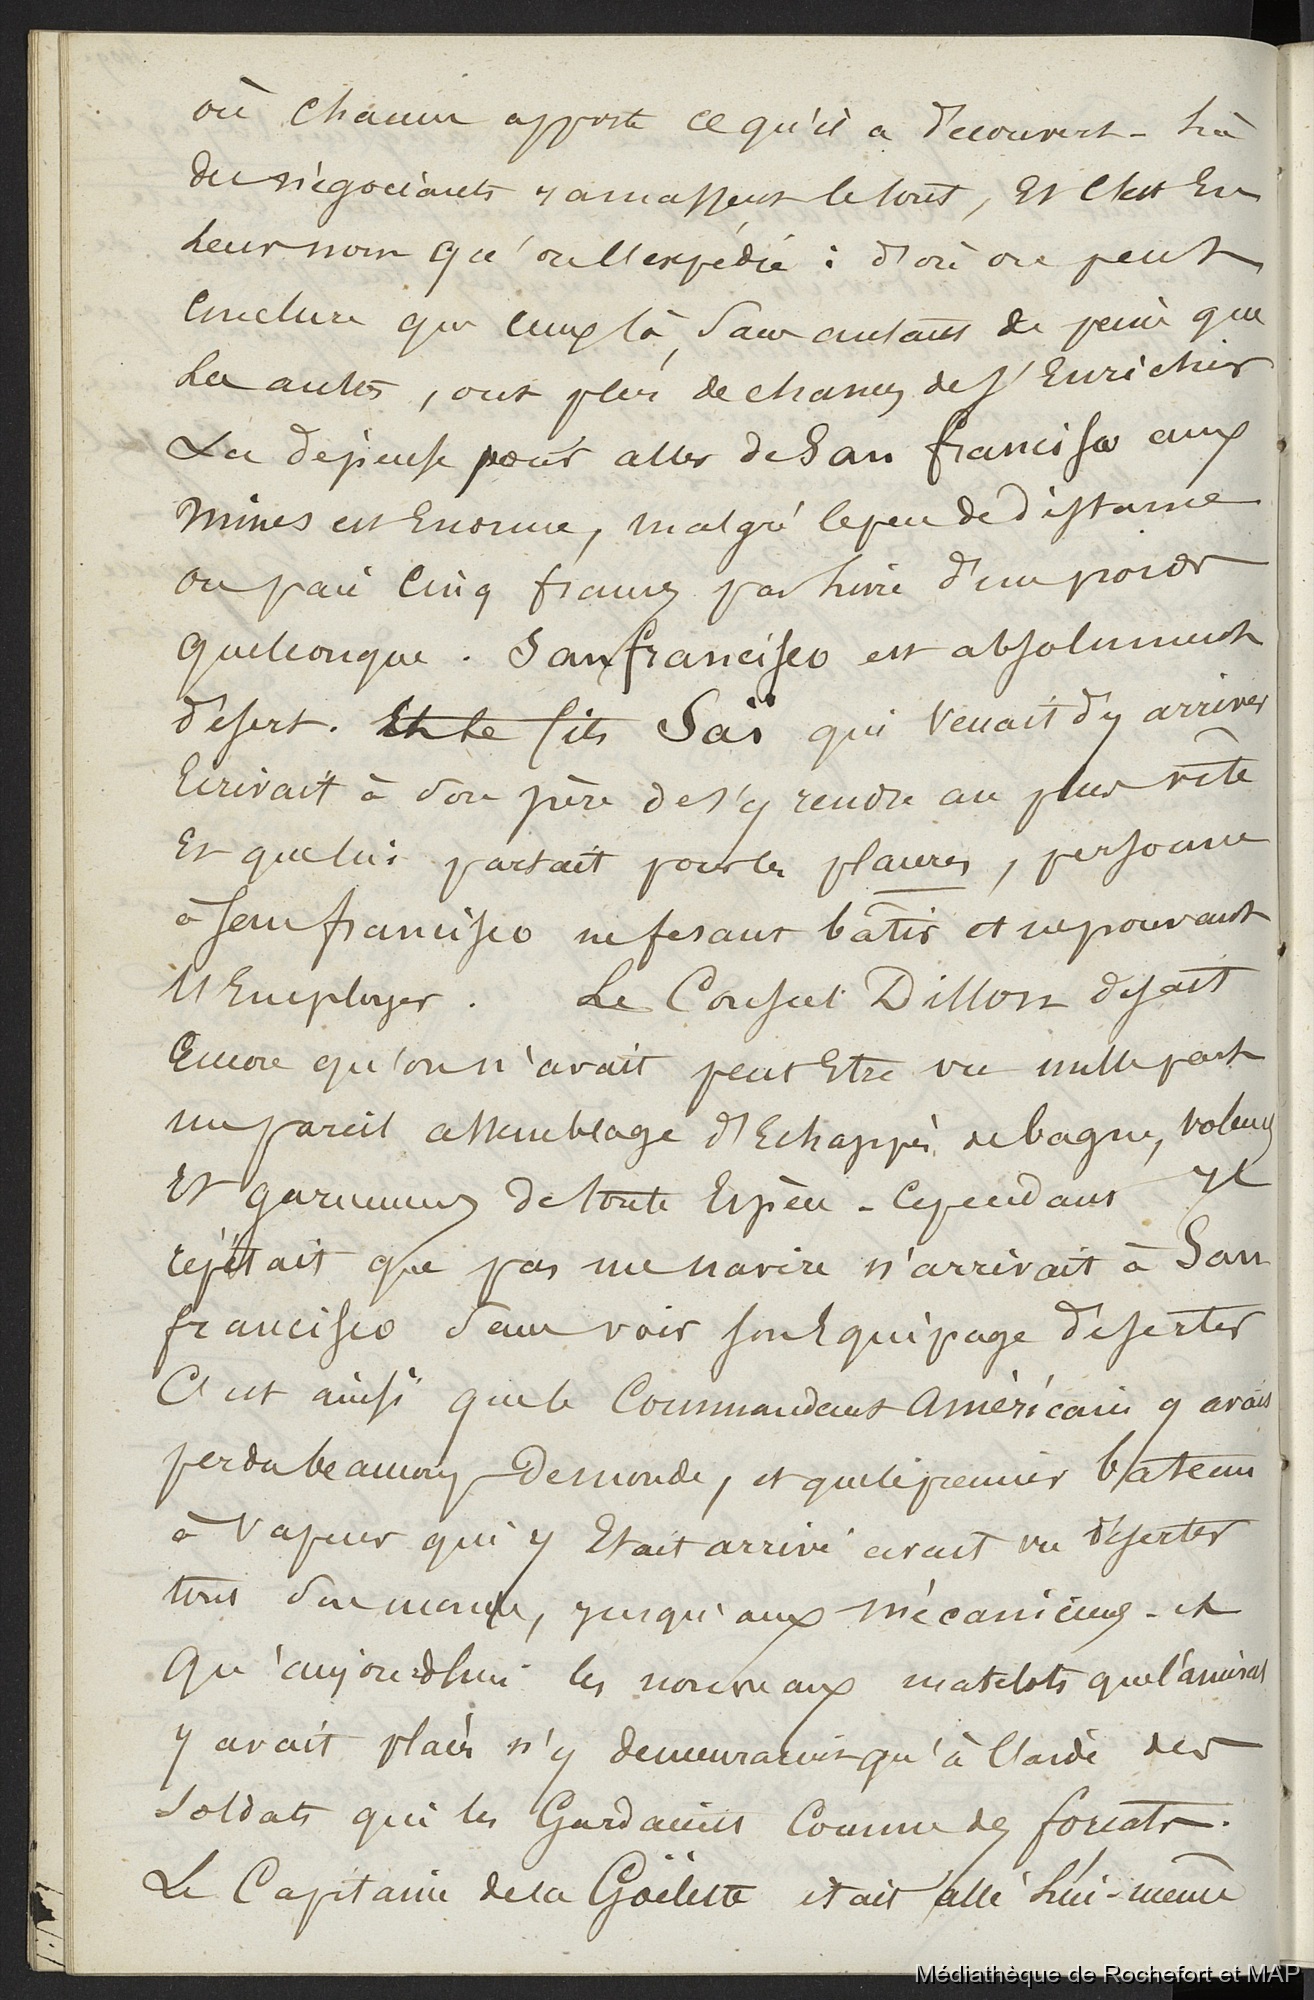 où chacun apporte ce qu'il a découvert - Là
des négociants ramassent le tout, Et C'est En
Leur nom qu'on l'expédie : d'où on peut
Conclure que Ceux là, Sans autant de peine que
Les autres, ont plus de chances de s'Enrichir
La dépense pour aller de San francisco aux
Mines est Enorme, malgré le peu de distance
on paie Cinq francs par Livre d'un poids
quelconque. San francisco est absolument
désert. Et le fils Saï qui Venait d'y arriver
Ecrivait à Son père de s'y rendre au plus vîte
Et que lui partait pour les placres, personne
à San francisco ne fesant bâtir et ne pouvant
l'Employer. Le Consul Dillon disait
Encore qu'on n'avait peut Etre vu nulle part
un pareil assemblage d'Echappés de bagne, Voleurs
Et garnemens de toute Espèce - Cependant yl
répétait que pas un navire n'arrivait à San
francisco Sans voir son Equipage déserter
C'est ainsi que le Commandant Américain y avait
perdu beaucoup de monde, et que le premier bateau
à Vapeur qui y Etait arrivé avait vu déserter
tout Son monde, jusqu'aux mécaniciens - et
qu'aujourdhui les nouveaux matelots que l'amiral
y avait placés n'y demeuraient qu'à l'aide des
Soldats qui les Gardaient Comme des forcats.
Le Capitaine de la Goëlette était allé Lui-même
Médiathèque de Rochefort et MAP